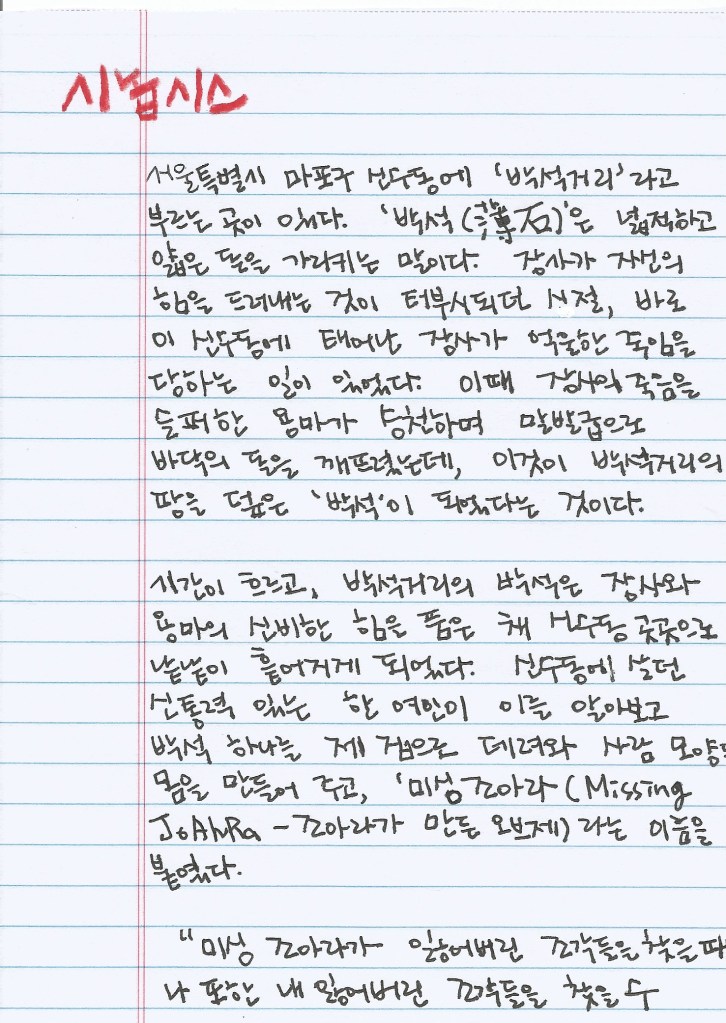 시놉시스
서울특별시 마포구 신수동에 '박석거리'라고
부르는 곳이 있다. '박석(薄石)'은 넓적하고
얇은 돌을 가리키는 말이다. 장사가 자신의
힘을 드러내는 것이 터부시되던 시절, 바로
이 신수동에 태어난 장사가 억울한 죽임을
당하는 일이 있었다. 이때 장사의 죽음을
슬퍼한 용마가 승천하며 말발굽으로
바닥의 돌을 깨뜨렸는데, 이것이 박석거리의
땅을 덮은 '박석'이 되었다는 것이다.
시간이 흐르고, 박석거리의 박석은 장사와
용마의 신비한 힘을 품은 채 신수동 곳곳으로
낱낱이 흩어지게 되었다. 신수동에 살던
신통력 있는 한 여인이 이를 알아보고
박석 하나를 제 집으로 데려와 사람 모양의
몸을 만들어 주고, '미싱 조아라 (Missing
JoAhRa - 조아라가 만든 오브제) 라는 이름을
붙였다.
"미싱 조아라가 잃어버린 조각들을 찾을 때
나 또한 내 잃어버린 조각들을 찾을 수